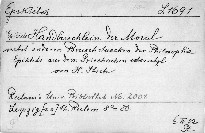 Epiktetos L 1691
Handbüchlein der Moral
nebst anderen Bruchstücken der Philosophie
Epiktets aus dem Griechischen
von H. Stich
Reclam's Univ. Bibliothek No. 2001
Leipzig Reclam 8°